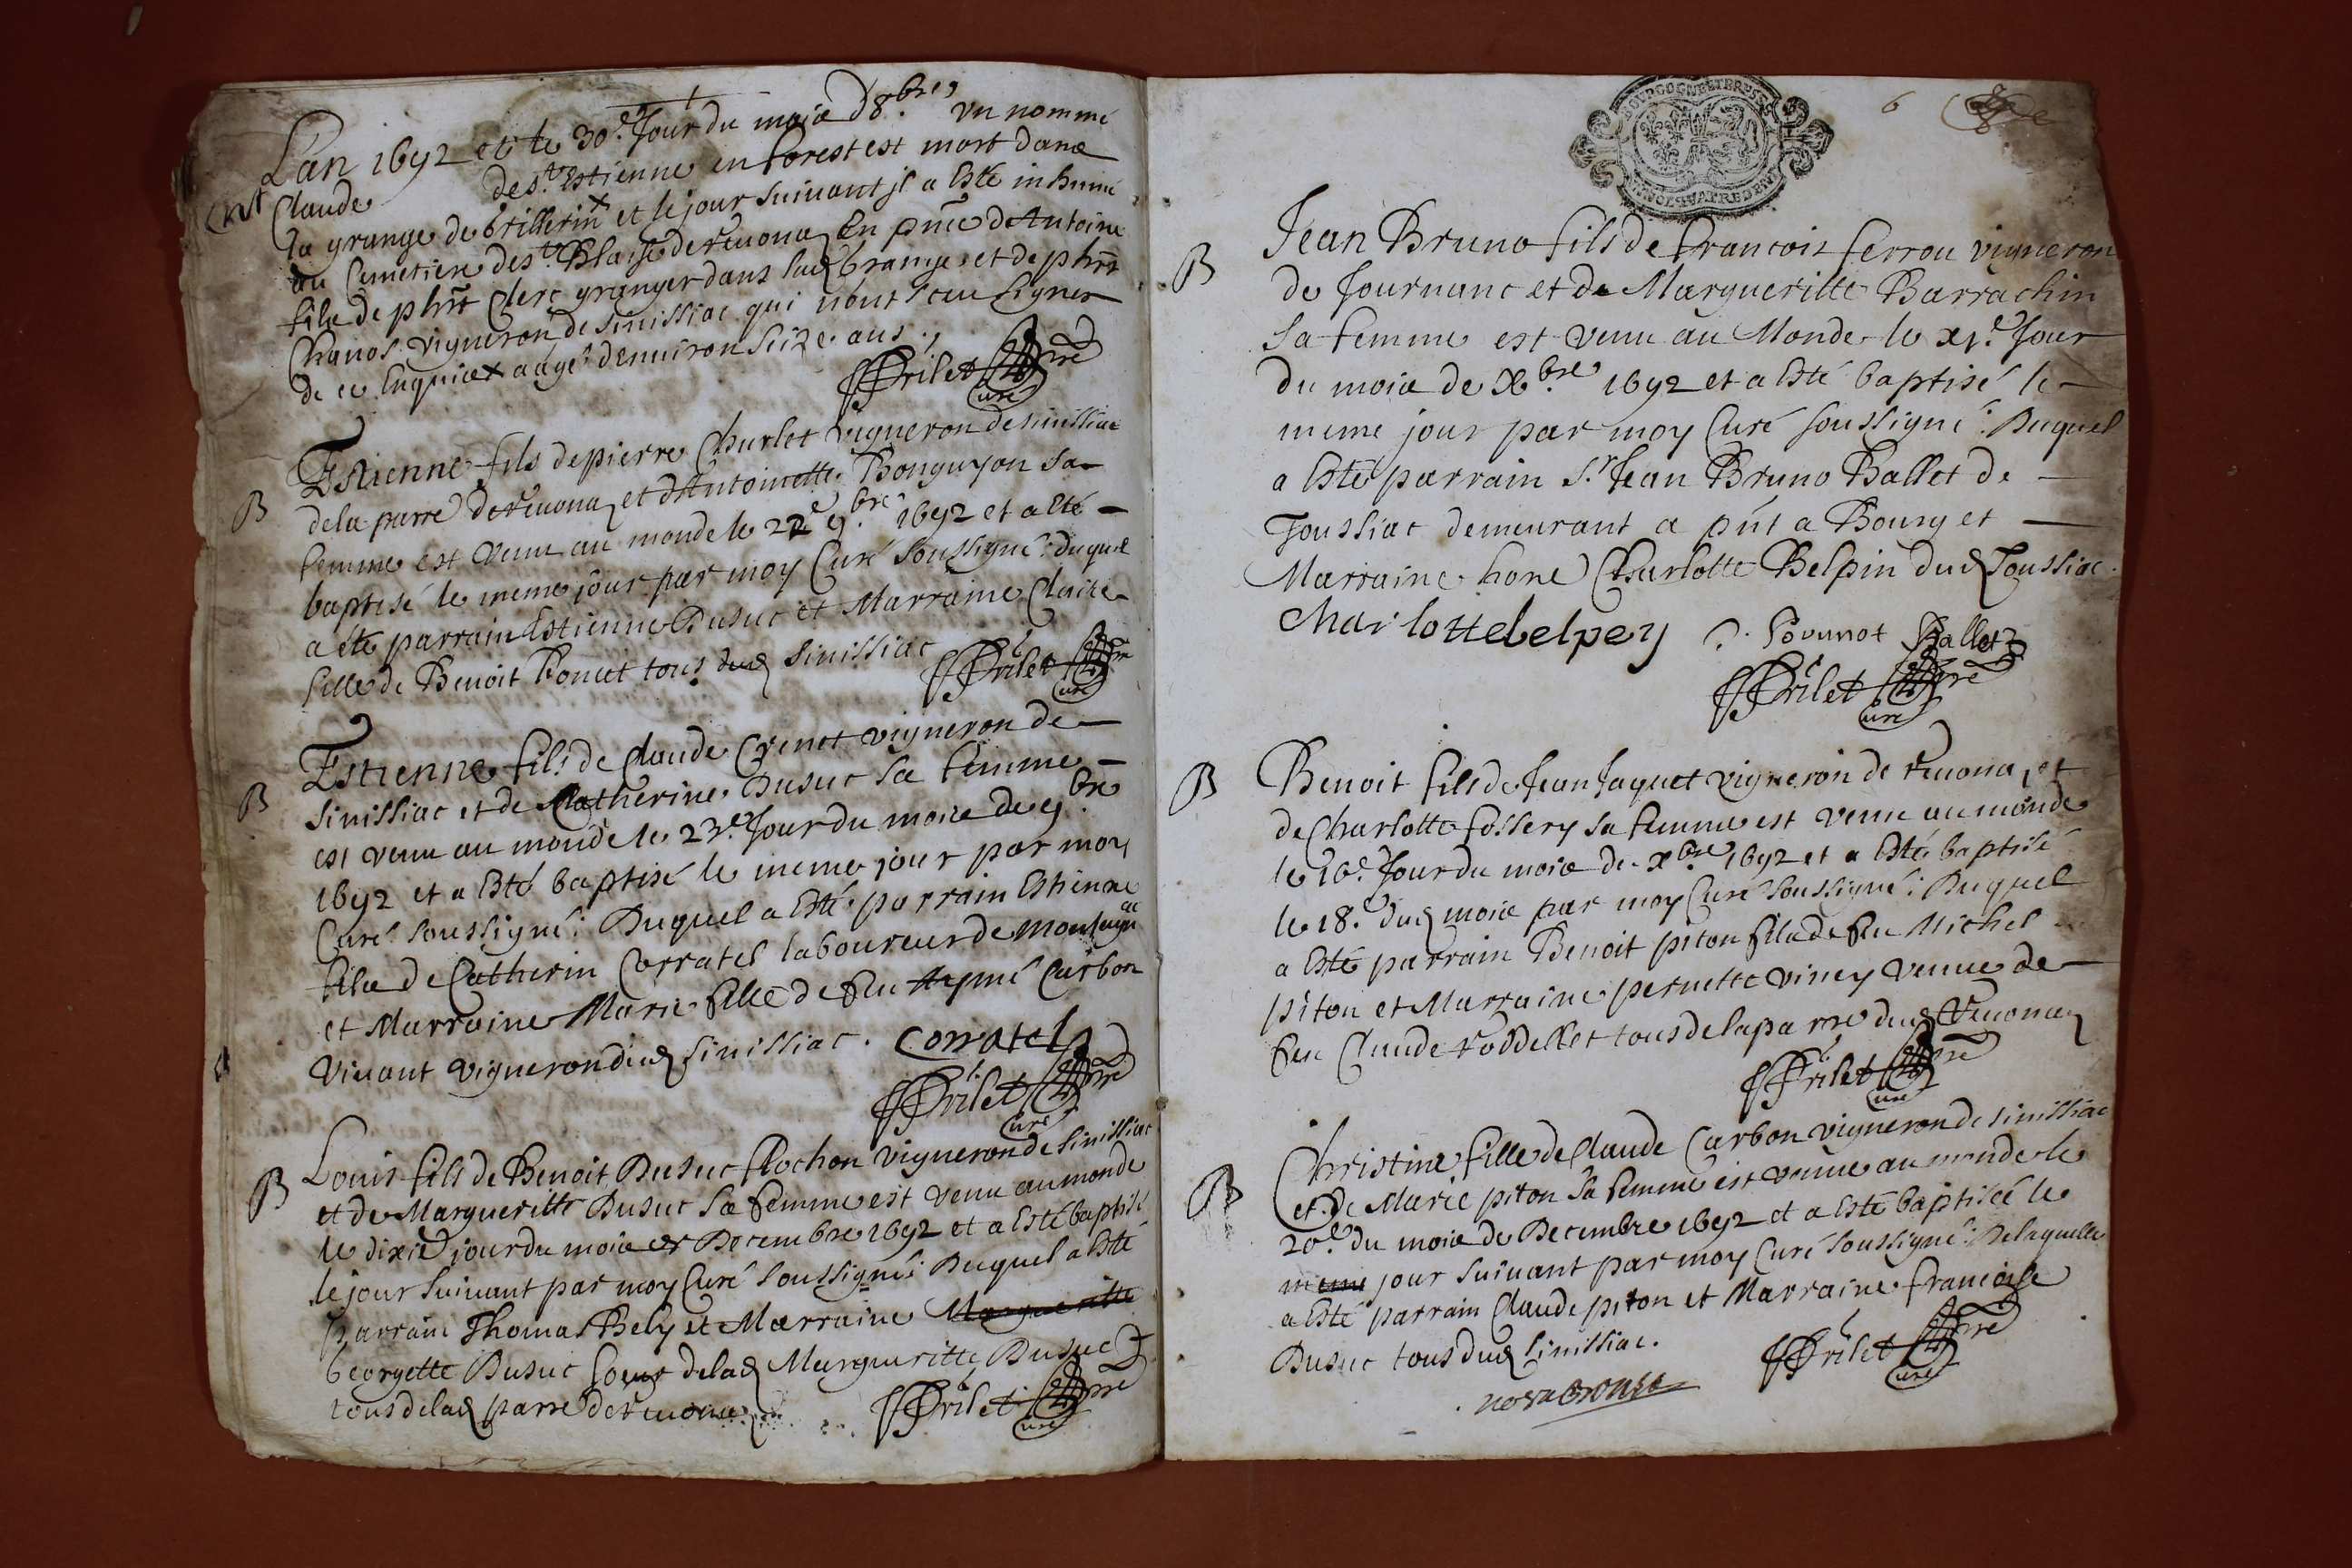 Lan 1692 et le 30e Jour du mois d8bre, vn nommé
Claude de st Estienne en forest est mort dans
la grange de brillerin et le jour suiuant jl a Esté inhumé
au Cemetiere de st Blaise de reuonaz En pnce de Antoine
fils de phrt Clerc granger dans lad grange et de phrt
Chanos vigneron de sinissiac qui n'ont sceu signer
de ce Enquis x aagé denuiron seize ans
FPrilet pre
Curé
B
Estienne fils de pierre Churlet vigneron de sinissiac
de la parre de reuonaz et dAntoinette Bonguyon sa
femme est venu au monde le 22e 9bre 1692 et a eté
baptisé le meme jour par moy Curé soussigné: duquel
a eté parrain Estienne Dusuc et Marraine Claire
fille de Benoit Poncet tous dud sinissiac
FPrilet pre
Curé
B
Estienne fils de Claude Quinet vigneron de
sinissiac et de Catherine Dusuc sa femme
est venu au monde le 23e Jour du mois de 9bre
1692 et a Esté baptisé le meme jour par moy
Curé soussigné: Duquel a Esté parrain Estienne
fils de Catherin Corratel laboureur de
et Marraine Marie fille de feu Aymé Carbon
viuant vigneron dud sinissiac. Corratel
FPrilet pre
Curé
B
Louis fils de Benoit Dusuc Rochon vigneron de sinissiac
et de Margueritte Dusuc sa femme est venu au monde
le dixie jour du mois de Decembre 1692 et a Esté baptisé
le jour suiuant par moy Curé soussigné: Duquel a Esté
parrain Thomas Bely et Marraine Margueritte
Georgette Dusuc soeur de lad Margueritte Dusuc
tous de lad parre de reuonaz
FPrilet pre
Curé
BOVRGOGNE ET BRESSE
6
B
Jean Bruno fils de francois ferrou vigneron
de Journanc et de Margueritte Barrachin
sa femme est venu au Monde le xie Jour
du mois de Xbre 1692 et a Esté baptisé le
meme jour par moy Curé soussigné: Duquel
a Esté parrain Sr Jean Bruno Ballet de
Joussiac demeurant a pnt a Bourg et
Marraine hone Charlotte Belpin dud Joussiac.
Charlottebelpey Ballet
FPrilet pre
Curé
B
Benoit fils de Jean Jaquet vigneron de reuona, et
de Charlotte fossery sa femme est venu au monde
le 16e Jour du mois de xbre 1692 et a Esté baptisé
le 18e dud mois par moy Curé soussigné: Duquel
a Esté parrain Benoit piton fils de feu Michel
piton et Marraine pernette viney veuue de
feu Claude roddellet tous de la parre dud Reuonaz
FPrilet pre
Curé
B
Christine fille de Claude Carbon vigneron de sinissiac
et de Marie piton sa femme est venue au monde le
20e du mois de Decembre 1692 et a Esté baptisée le
meme jour suiuant par moy Curé soussigné: De laquelle
a Esté parrain Claude piton et Marraine francoise
Dusuc tous dud sinissiac.
FPrilet pre
Curé